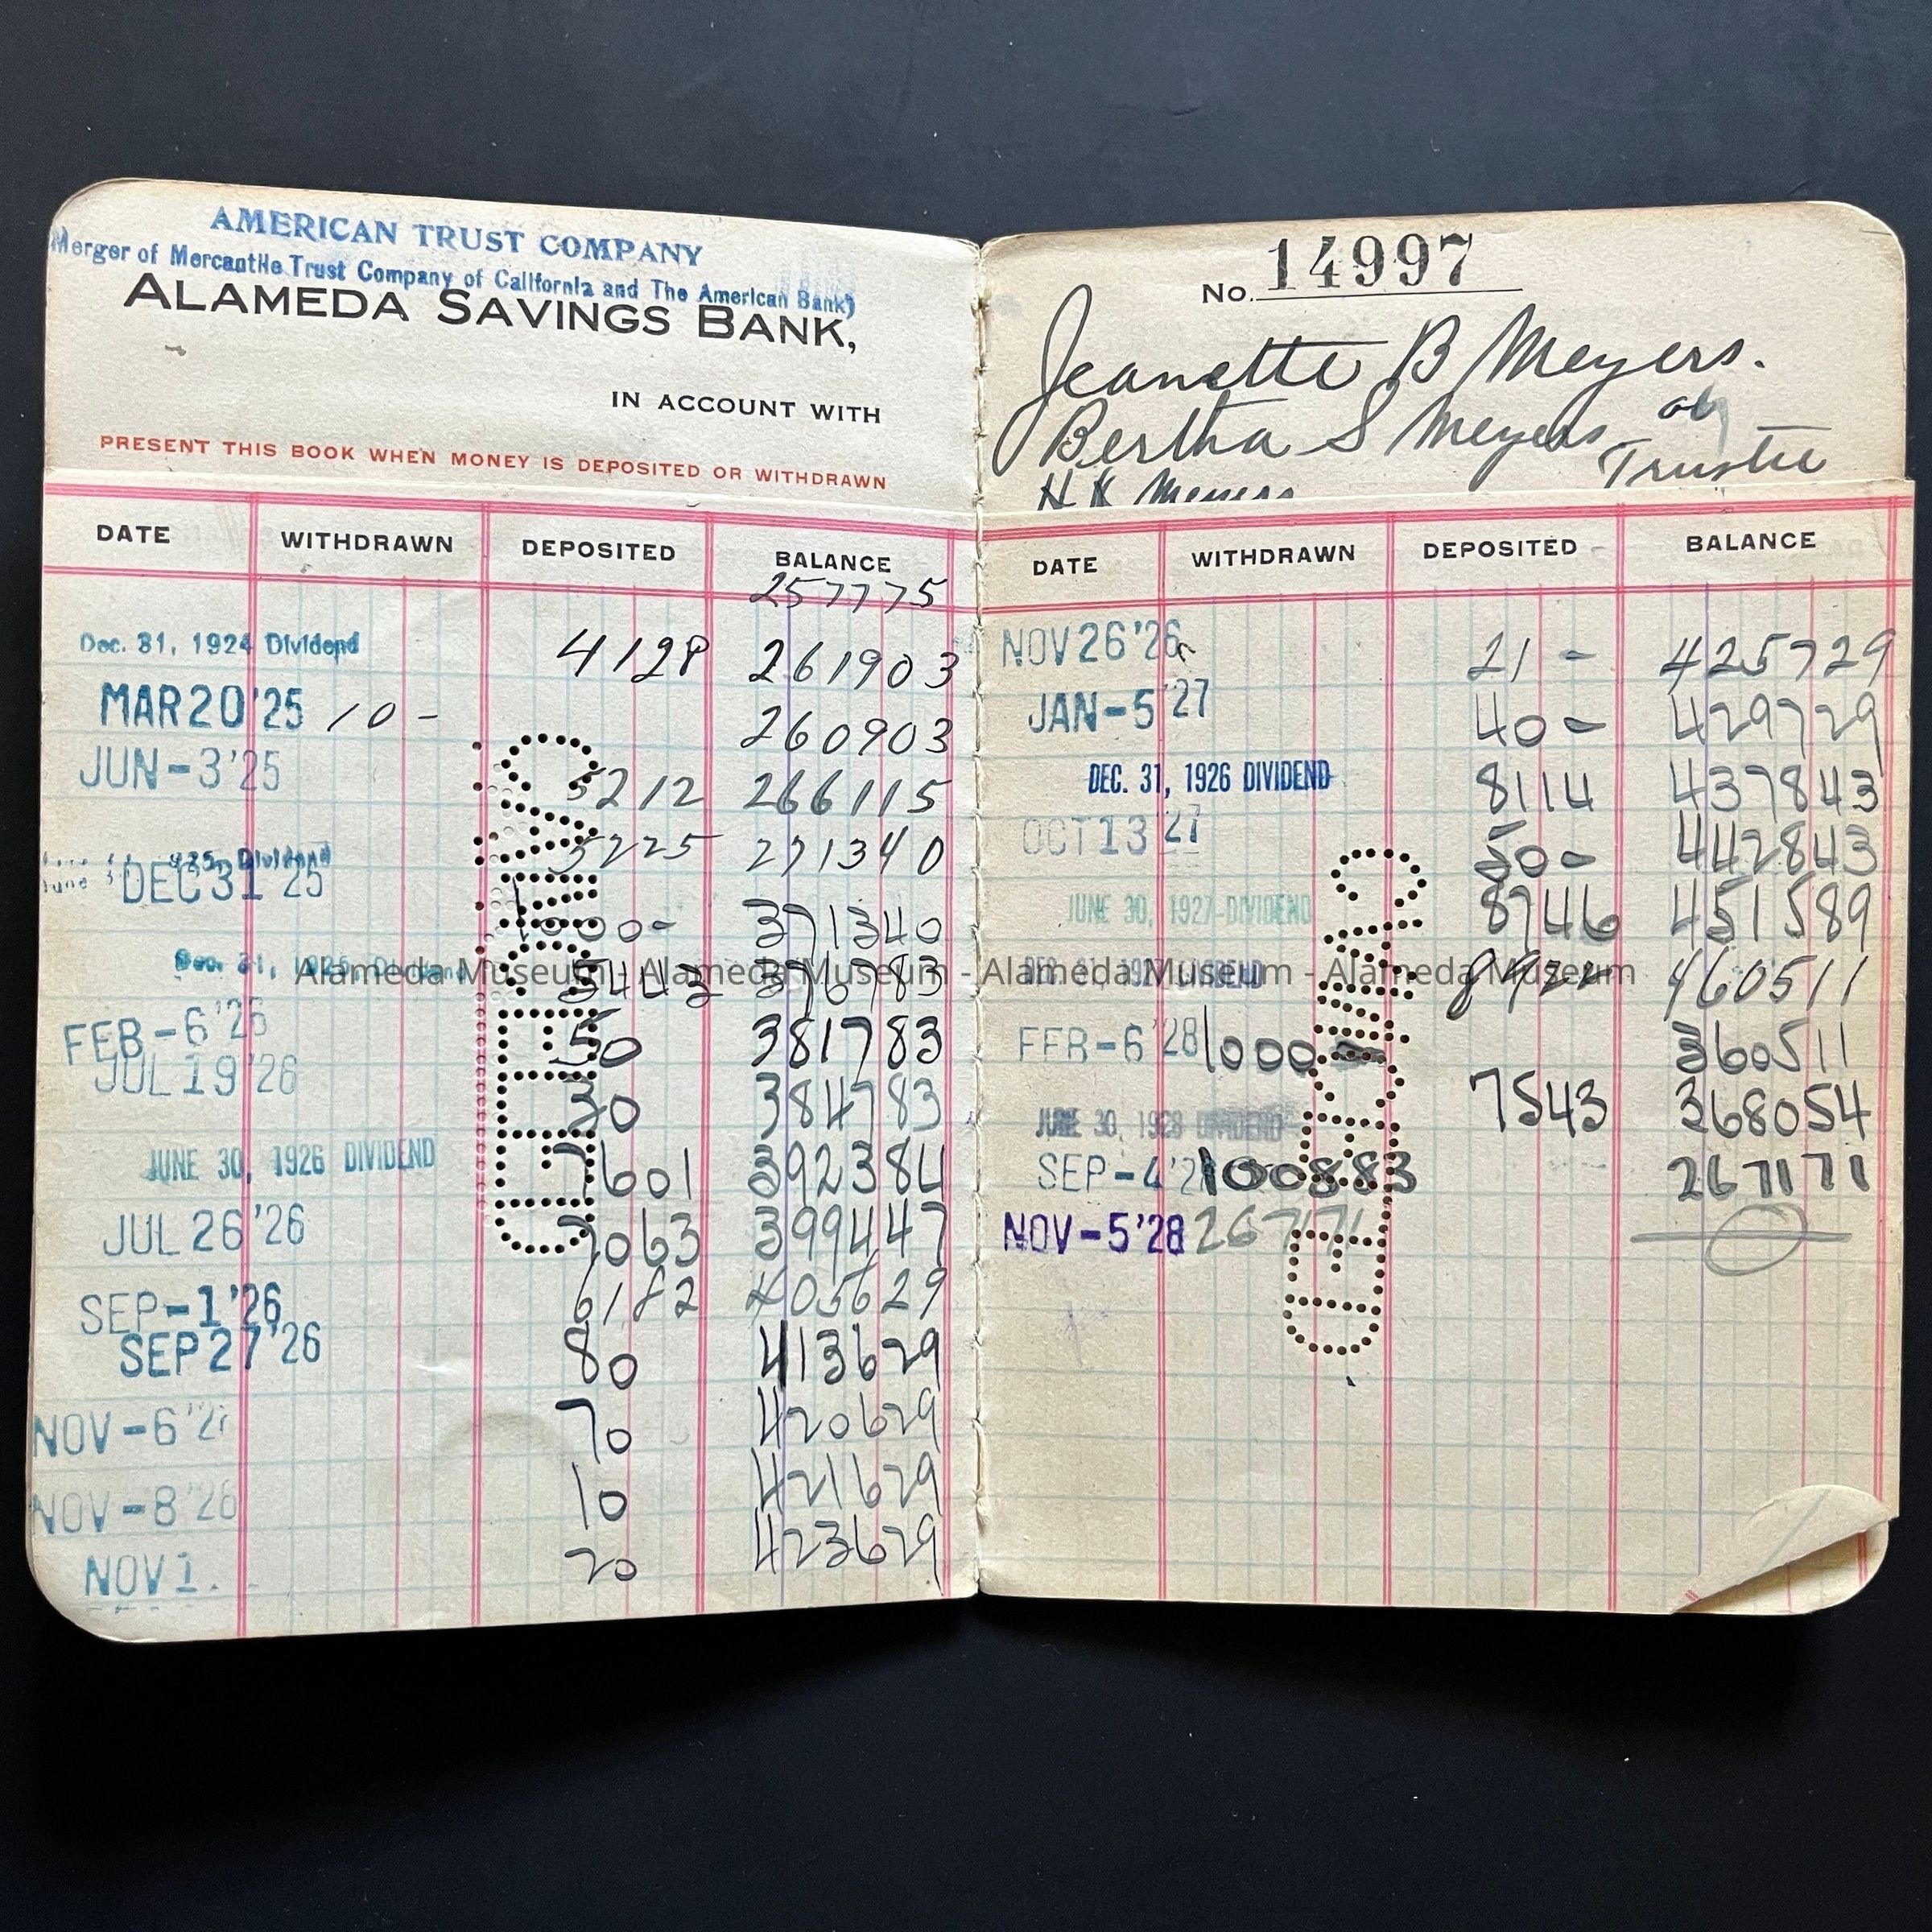 AMERICAN TRUST COMPANY
Merger of Mercantile Trust Company of California and The American Bank)
ALAMEDA SAVINGS BANK,
IN ACCOUNT WITH
PRESENT THIS BOOK WHEN MONEY IS DEPOSITED OR WITHDRAWN
DATE WITHDRAWN DEPOSITED BALANCE
257775
Dec. 31, 1924 Dividend 4128 261903
MAR 20 '25 10 - 260903
JUN - 3 '25 5212 266115
Dividend 5225 271340
DEC 31 '25 1000- 371340
Dec. 31, 5443 376783
FEB - 6 '26 50 381783
JUL 19 '26 30 384783
JUNE 30, 1926 DIVIDEND 7601 392384
JUL 26 '26 7063 399447
SEP - 1 '26 6182 405629
SEP 27 '26 80 413629
NOV - 6 70 420629
NOV - 8 '26 10 421629
NOV 1 20 423629
CANCELLED
No. 14997
Jeanette B Meyers.
Bertha S Meyers
Trustee
H K Meyers
DATE WITHDRAWN DEPOSITED BALANCE
NOV 26 '26 21 - 425729
JAN - 5 '27 40 - 429729
DEC. 31, 1926 DIVIDEND 8114 437843
OCT 13 '27 50 - 442843
JUNE 30, 1927 DIVIDEND 8746 451589
DIVIDEND 8922 460511
FEB - 6 '28 1000 - 360511
JUNE 30, 1928 DIVIDEND 7543 368054
SEP - 4 100883 267171
NOV - 5 '28 267171
Alameda Museum - Alameda Museum - Alameda Museum - Alameda Museum